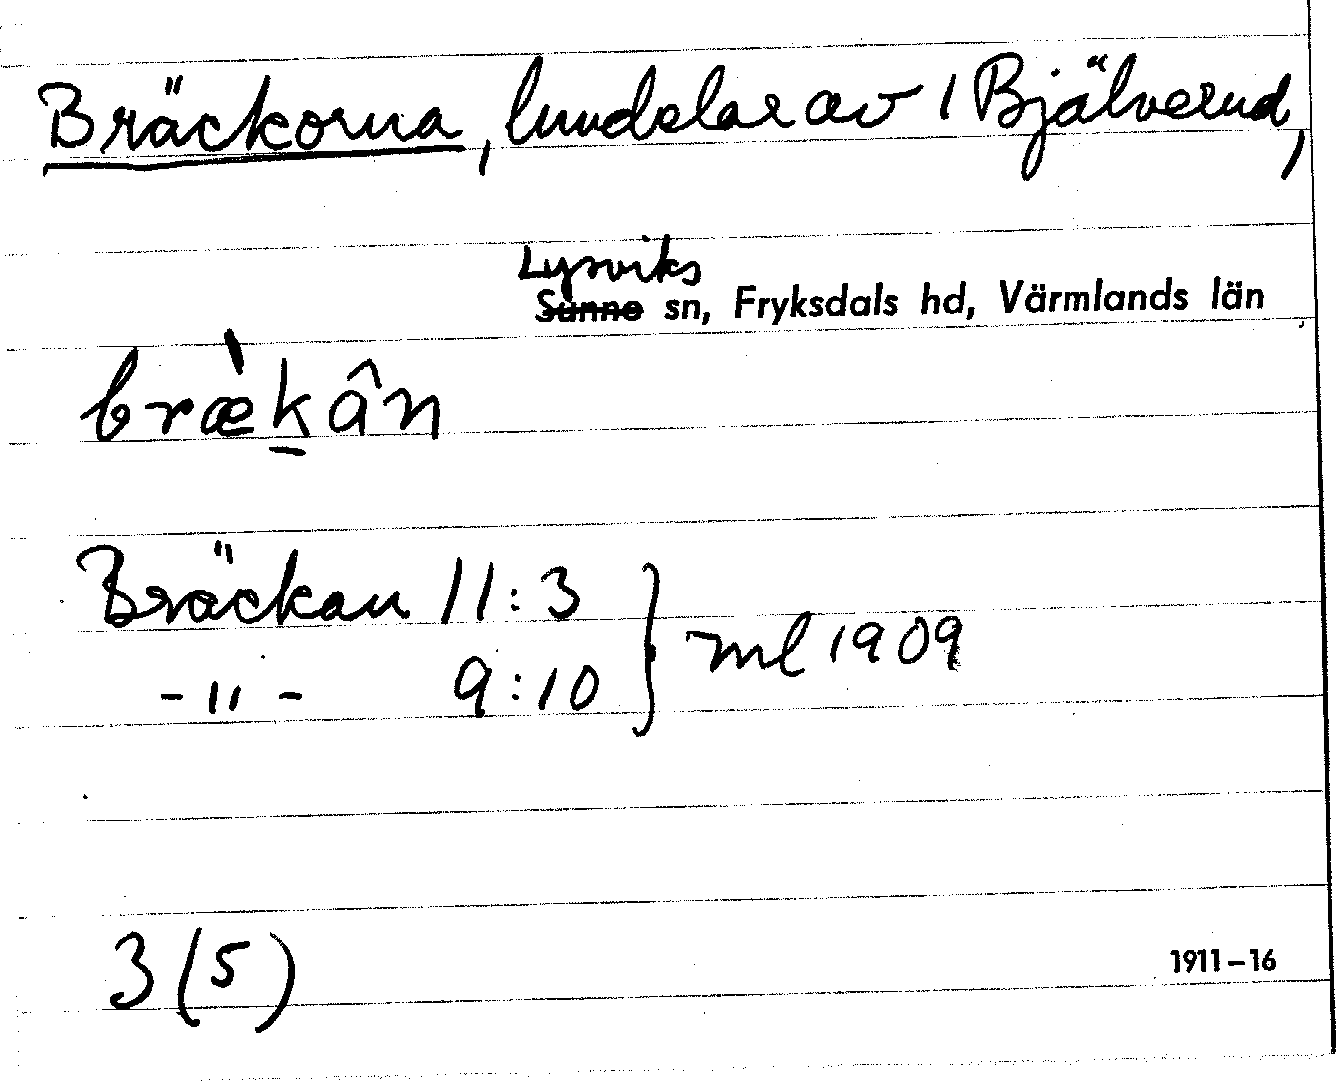 Bräckorna, lundelar av 1 Bjälverud,
Lysviks
Sunne sn, Fryksdals hd, Värmlands län
bræ̀k̠ân
Bräckan 11:3
-"- 9:10 } ml 1909
3 (5)
1911–16